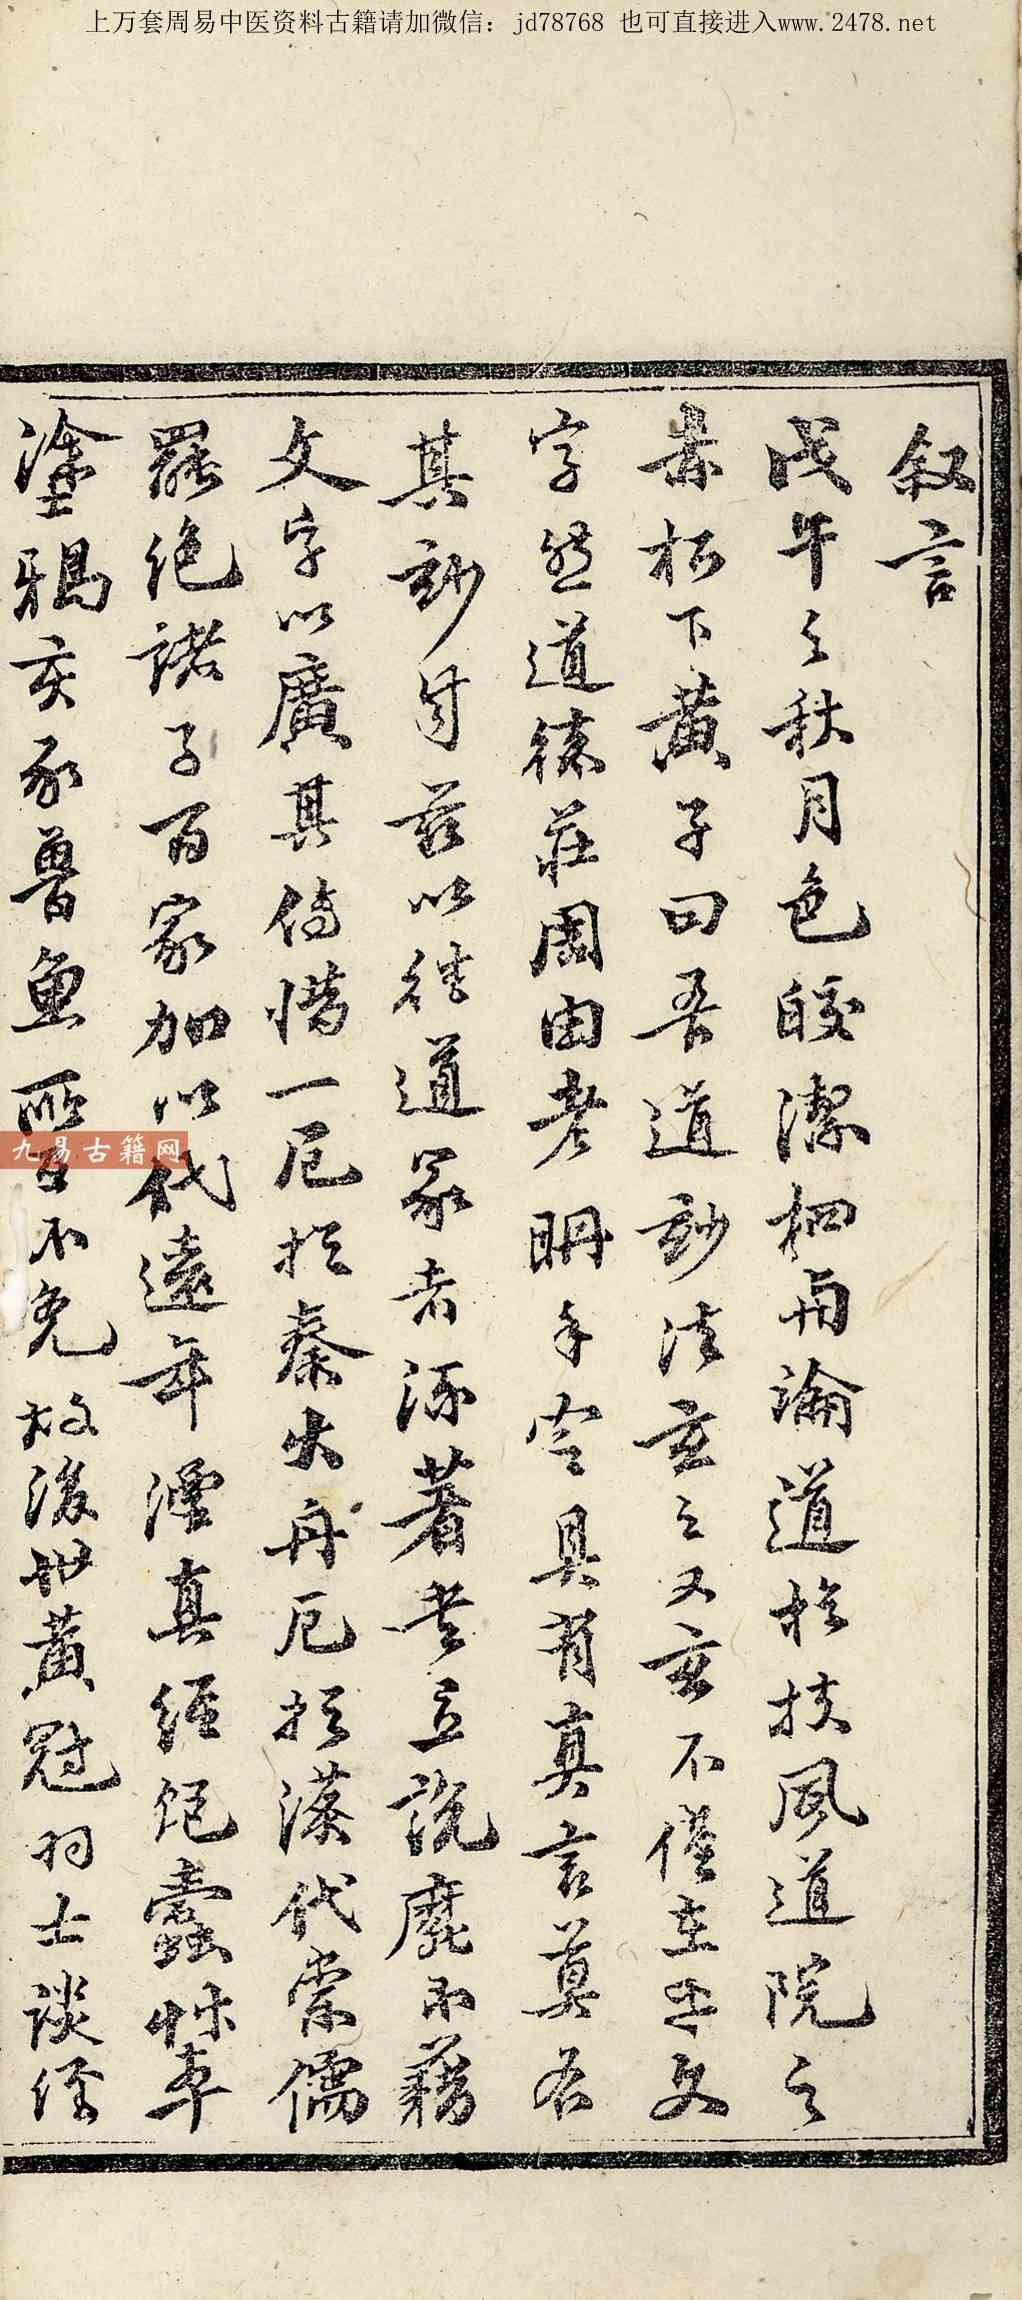 上万套周易中医资料古籍请加微信：jd78768 也可直接进入www.2478.net
叙言
戊午之秋月色皎潔栖雨論道於扶風道院之
赤松下黄子曰吾道妙法玄之又玄不僅在文
字然道德莊周由老明手令具有真言莫名
其妙自茲以往道家者流著書立說靡不藉
文字以廣其傳惜一厄於秦火再厄於漢代崇儒
罷絶諸子百家加以代遠年湮真經飽蠹
塗鴉亥豕魯魚所不免故後世黄冠羽士談經
九易古籍网